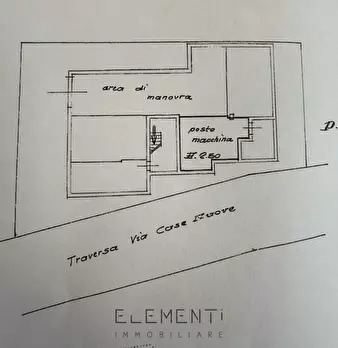 area di
manovra
posto
macchina
H. 2.50
D.
Traversa Via Case Nuove
ELEMENTi
IMMOBILIARE